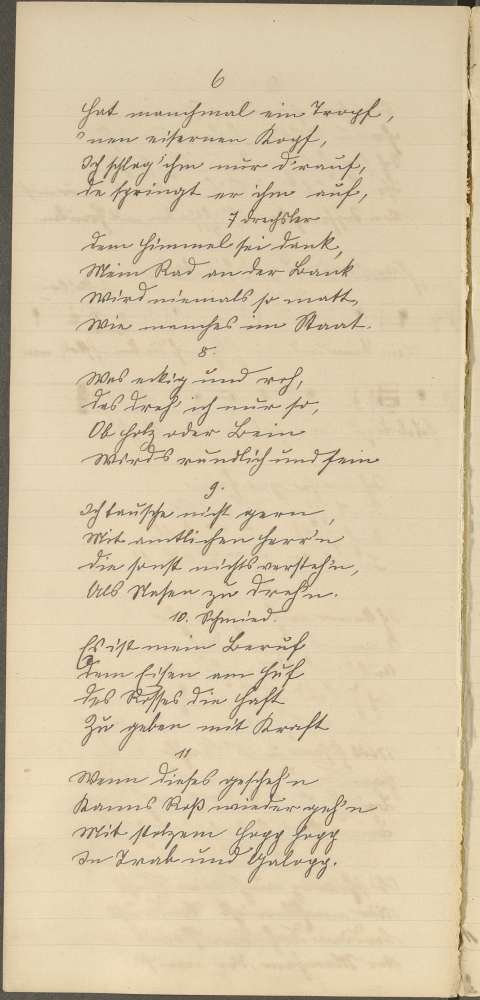 6
Hat manchmal ein Tropf,
'nen eisernen Kopf,
Ich schlag' ihm nur d'rauf,
da springt er ihm auf,
7 Drechsler
dem Himmel sei dank,
Mein Rad an der Bank
Wird niemals so matt,
Wie manches im Staat.
8.
Was eckig und roh,
das dreh' ich nur so,
Ob Holz oder Bein
Wirds rundlich und fein
9.
Ich tausche nicht gern,
Mit amtlichen Herr'n
die sonst nichts versteh'n,
Als Nasen zu dreh'n.
10. Schmied.
Es ist mein Beruf
dem Eisen am Huf
des Rosses die Haft
Zu geben mit Kraft
11
Wenn dieses gescheh'n
Kanns Roß wieder geh'n
Mit stolzem Hopp hopp
In Trab und Galopp.